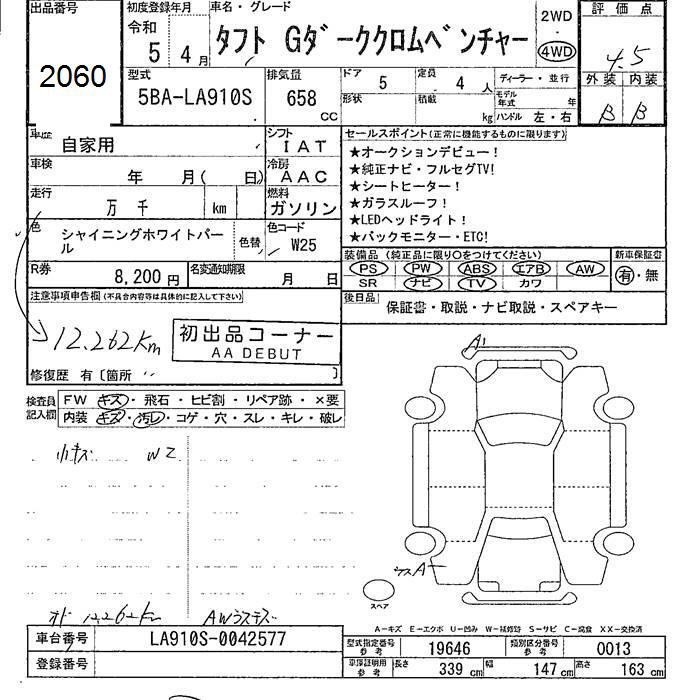 出品番号
2060
初度登録年月
令和
5 4月
車名・グレード
タフト Gダーククロムベンチャー
2WD
・
4WD
評価点
4.5
外装 内装
B B
型式
5BA-LA910S
排気量
658
CC
ドア
5
定員
4 人
形状
積載
kg
ディーラー・並行
モデル年式
年
ハンドル 左・右
車歴
自家用
シフト
IAT
車検
年 月( 日)
冷房
AAC
走行
万 千 km
燃料
ガソリン
色
シャイニングホワイトパール
色替
色コード
W25
R券
8,200円
名変通知期限
月 日
セールスポイント(正常に機能するものに限ります)
★オークションデビュー!
★純正ナビ・フルセグTV!
★シートヒーター!
★ガラスルーフ!
★LEDヘッドライト!
★バックモニター・ETC!
装備品(純正品に限り○をつけてください)
PS PW ABS エアB AW
SR ナビ TV カワ
新車保証書
有・無
後日品
保証書・取説・ナビ取説・スペアキー
注意事項申告欄(不具合内容等は具体的に記入して下さい)
12.262Km
初出品コーナー
AA DEBUT
修復歴 有〔箇所 〕
検査員記入欄
FW キズ・飛石・ヒビ割・リペア跡・×要
内装 キズ・汚レ・コゲ・穴・スレ・キレ・破レ
小キズ W2
A'
A-
スペア
A-キズ E-エクボ U-凹み W-補修跡 S-サビ C-腐食 XX-交換済
車台番号
LA910S-0042577
登録番号
型式指定番号
参考
19646
類別区分番号
参考
0013
車庫証明用
参考
長さ
339 cm
幅
147 cm
高さ
163 cm